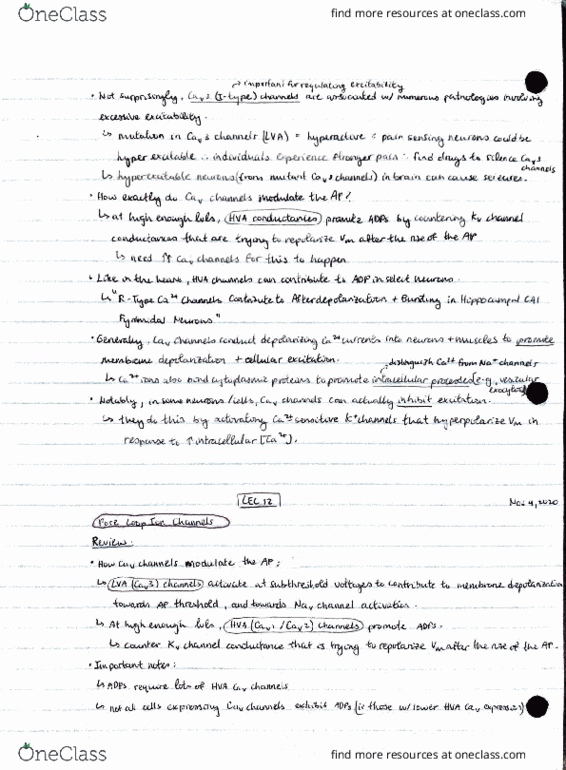 OneClass
find more resources at oneclass.com
→ important for regulating excitability
• Not surprisingly, Cav3 (T-type) channels are associated w/ numerous pathologies involving
excessive excitability.
↳ mutation in Cav3 channels (LVA) = hyperactive ∴ pain sensing neurons could be
hyper excitable ∴ individuals experience stronger pain ∴ find drugs to silence Cav3
channels
↳ hyperexcitable neurons (from mutant Cav3 channels) in brain can cause seizures.
• How exactly do Cav channels modulate the AP?
↳ at high enough levels, HVA conductances promote ADPs by countering Kv channel
conductances that are trying to repolarize Vm after the rise of the AP
↳ need ↑↑ Cav channels for this to happen
• Like in the heart, HVA channels can contribute to ADP in select neurons.
↳ "R-Type Ca2+ Channels Contribute to Afterdepolarization + Bursting in Hippocampal CA1
Pyramidal Neurons"
• Generally, Cav channels conduct depolarizing Ca2+ currents into neurons + muscles to promote
membrane depolarization + cellular excitation.
→ distinguish Ca2+ from Na+ channels
↳ Ca2+ ions also bind cytoplasmic proteins to promote intracellular processes (e.g. vesicular
exocytosis)
• Notably, in some neurons/cells, Cav channels can actually inhibit excitation.
↳ they do this by activating Ca2+ sensitive K+ channels that hyperpolarize Vm in
response to ↑ intracellular [Ca2+].
LEC 12
Nov 4, 2020
Pore Loop Ion Channels
Review:
• How Cav channels modulate the AP:
↳ LVA (Cav3) channels activate at subthreshold voltages to contribute to membrane depolarization
towards AP threshold, and towards Nav channel activation.
↳ At high enough levels, HVA (Cav1/Cav2) channels promote ADPs.
↳ counter Kv channel conductance that is trying to repolarize Vm after the rise of the AP.
• Important notes:
↳ ADPs require lots of HVA Cav channels
↳ not all cells expressing Cav channels exhibit ADPs (ie those w/ lower HVA Cav express)
OneClass
find more resources at oneclass.com